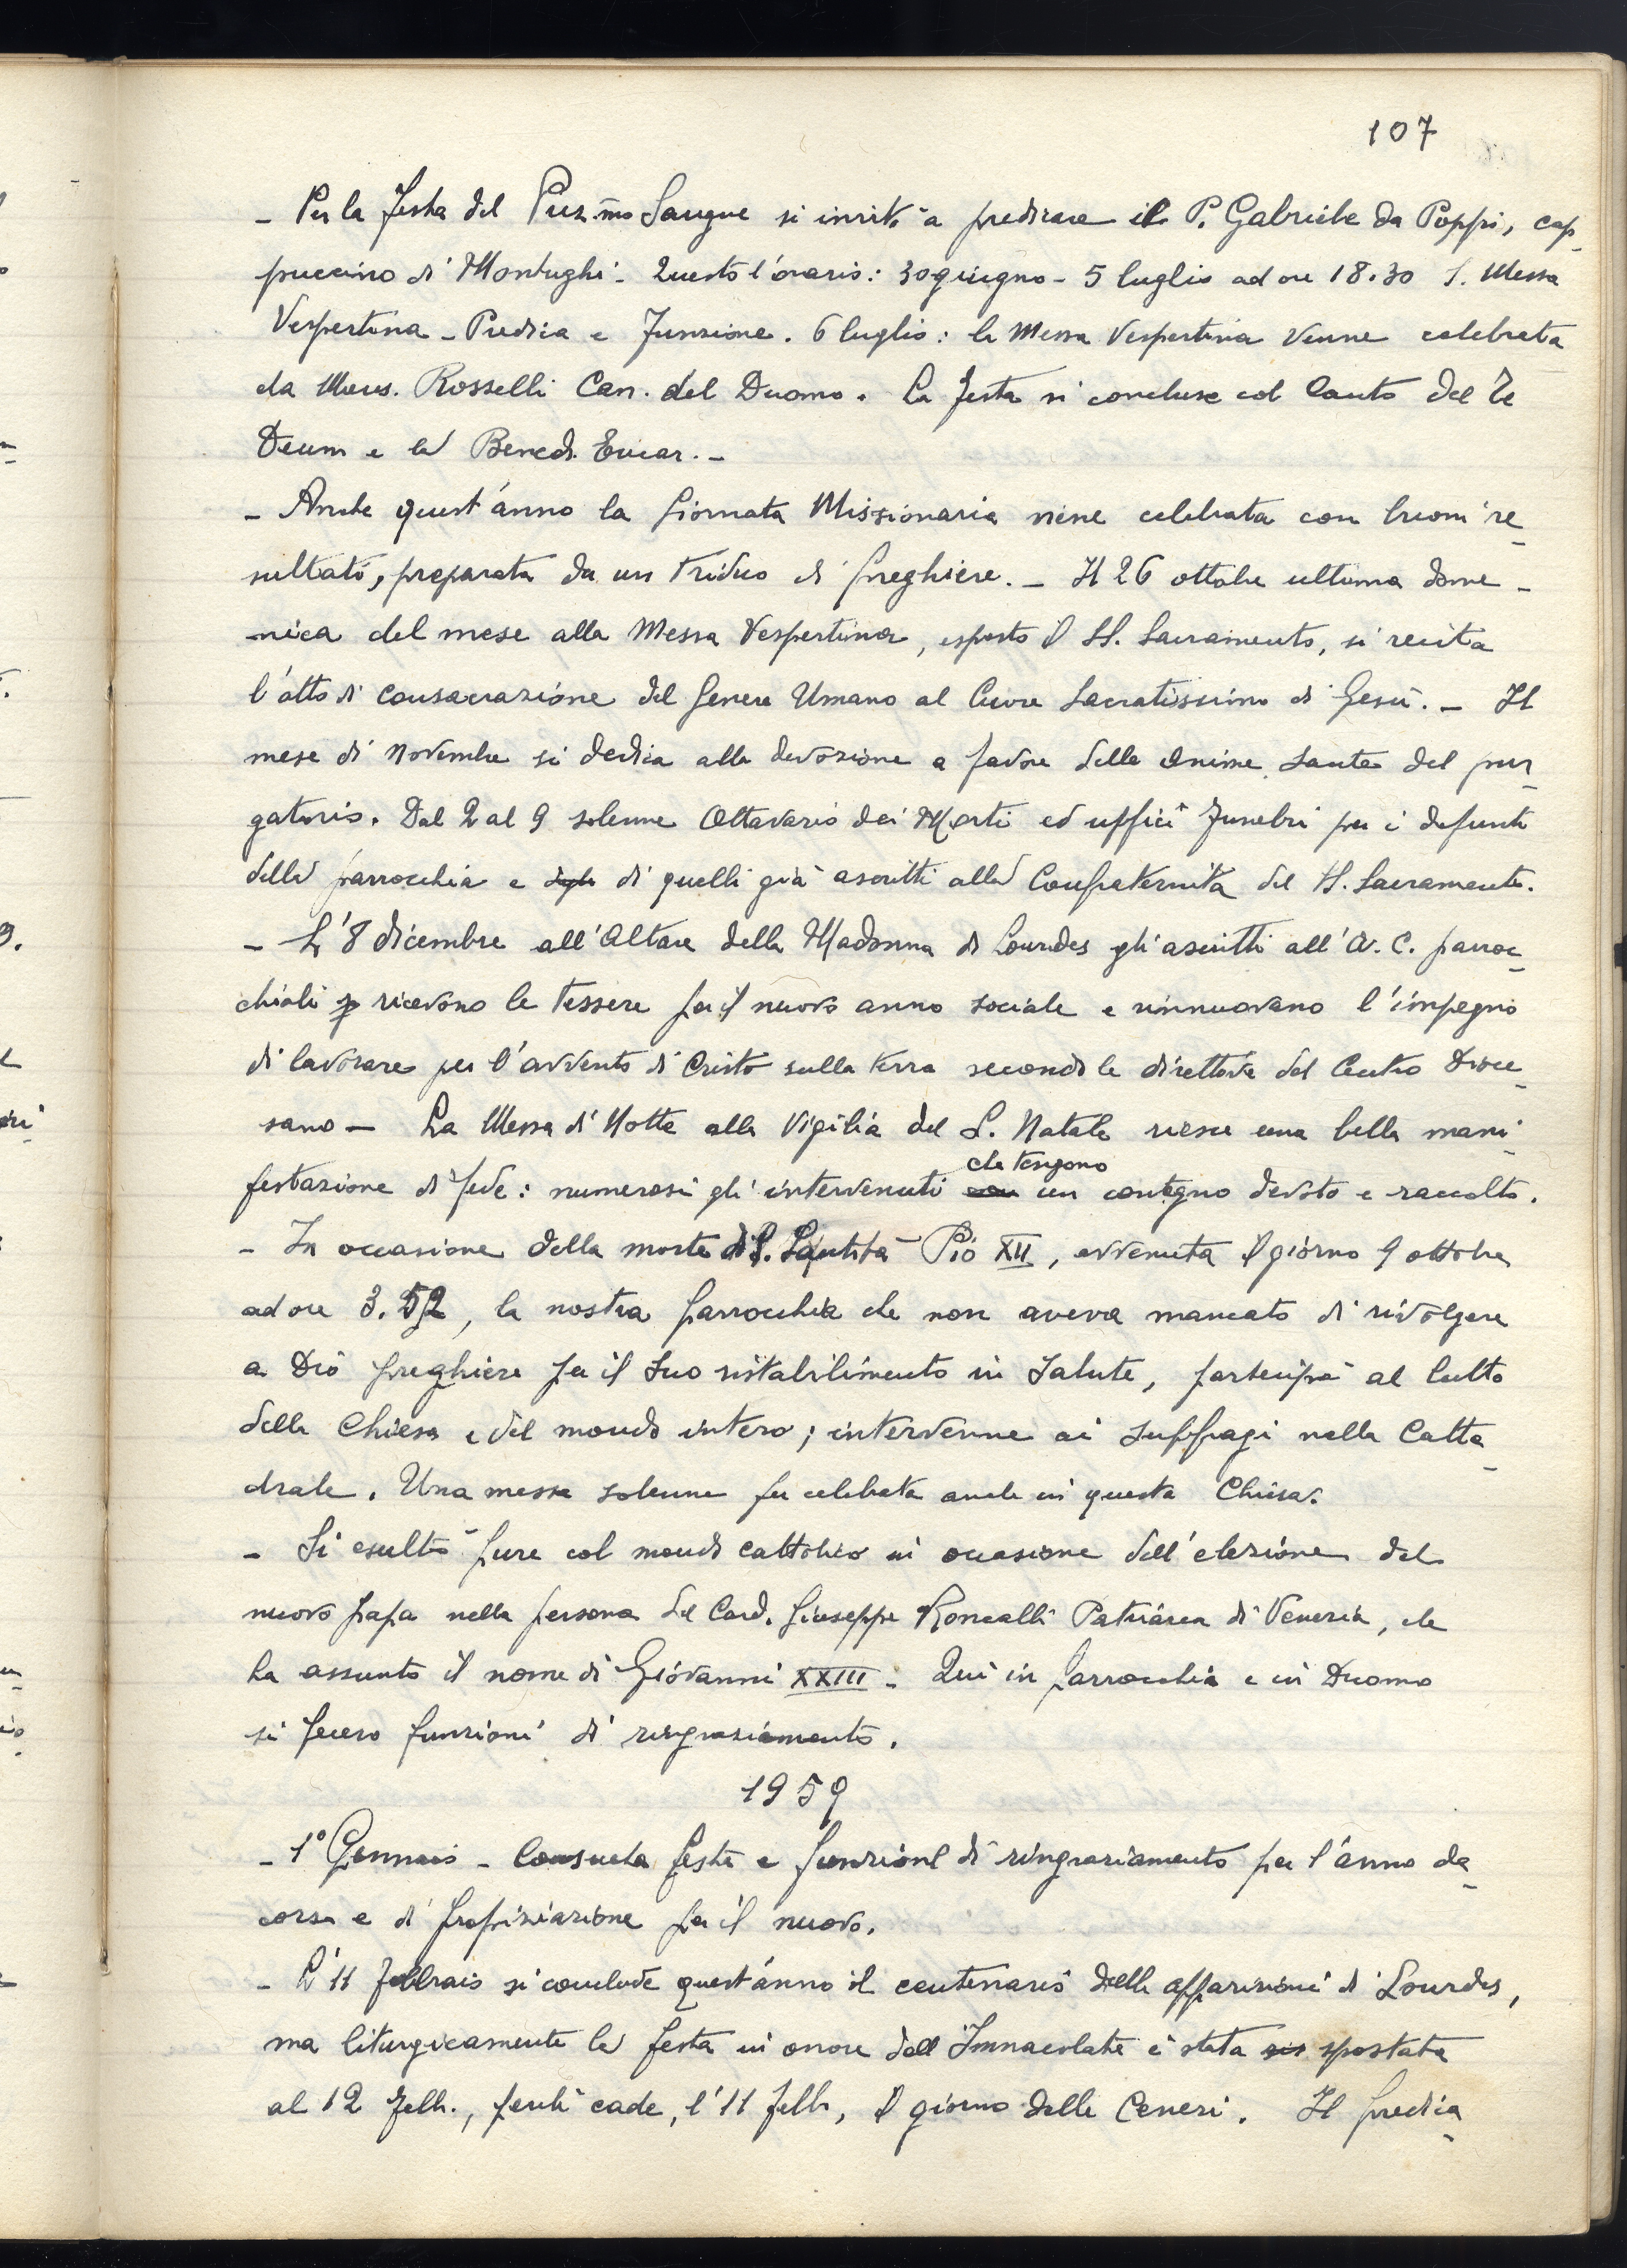 107
- Per la festa del Prez.mo Sangue si invitò a predicare il P. Gabriele da Poppi, cap-
puccino di Montughi - Questo l'orario: 30 giugno - 5 luglio ad ore 18.30 S. Messa
Vespertina - Predica e Funzione. 6 luglio: la Messa Vespertina venne celebrata
da Mons. Rosselli Can. del Duomo. La festa si concluse col Canto del Te
Deum e la Bened. Eucar. -
- Anche quest'anno la Giornata Missionaria viene celebrata con buoni re-
sultati, preparata da un triduo di preghiere. - Il 26 ottobre ultima dome-
nica del mese alla Messa Vespertina, esposto il SS. Sacramento, si recita
l'atto di consacrazione del Genere Umano al Cuore Sacratissimo di Gesù. - Il
mese di Novembre si dedica alla devozione a favore delle anime sante del pur-
gatorio. Dal 2 al 9 solenne Ottavario dei Morti ed uffici funebri per i defunti
della parrocchia e di quelli già ascritti alla Confraternita del SS. Sacramento.
- L'8 dicembre all'Altare della Madonna di Lourdes gli ascritti all'A. C. parroc-
chiali ricevono le tessere per il nuovo anno sociale e rinnuovano l'impegno
di lavorare per l'avvento di Cristo sulla terra secondo le direttive del Centro Dioce-
sano - La Messa di Notte alla Vigilia del S. Natale riesce una bella mani-
festazione di fede: numerosi gli intervenuti che tengono un contegno devoto e raccolto.
- In occasione della morte di S. Santità Pio XII, avvenuta il giorno 9 ottobre
ad ore 3.52, la nostra parrocchia che non aveva mancato di rivolgere
a Dio preghiere per il suo ristabilimento in salute, partecipò al lutto
della Chiesa e del mondo intero; intervenne ai suffragi nella Catte-
drale. Una messa solenne fu celebrata anche in questa Chiesa.
- Si esultò pure col mondo cattolico in occasione dell'elezione del
nuovo papa nella persona del Card. Giuseppe Roncalli Patriarca di Venezia, che
ha assunto il nome di Giovanni XXIII - Qui in parrocchia e in Duomo
si fecero funzioni di ringraziamento.
1959
- 1° Gennaio - Consueta festa e funzione di ringraziamento per l'anno de-
corso e di propiziazione per il nuovo.
- L'11 febbraio si conclude quest'anno il centenario delle apparizioni di Lourdes,
ma liturgicamente la festa in onore dell'Immacolata è stata spostata
al 12 febb., perchè cade, l'11 febb., il giorno delle Ceneri. Il predica-